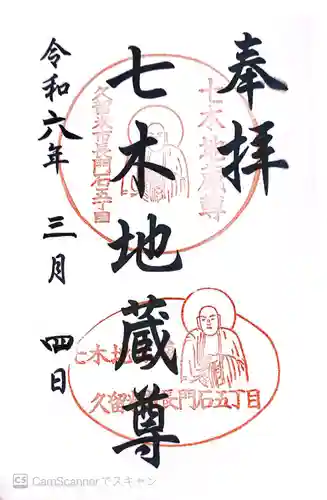 奉拝
七木地蔵尊
令和六年 三月 四日
七木地蔵尊
久留米市長門石五丁目
七木地
久留 長門石五丁目
CS CamScannerでスキャン